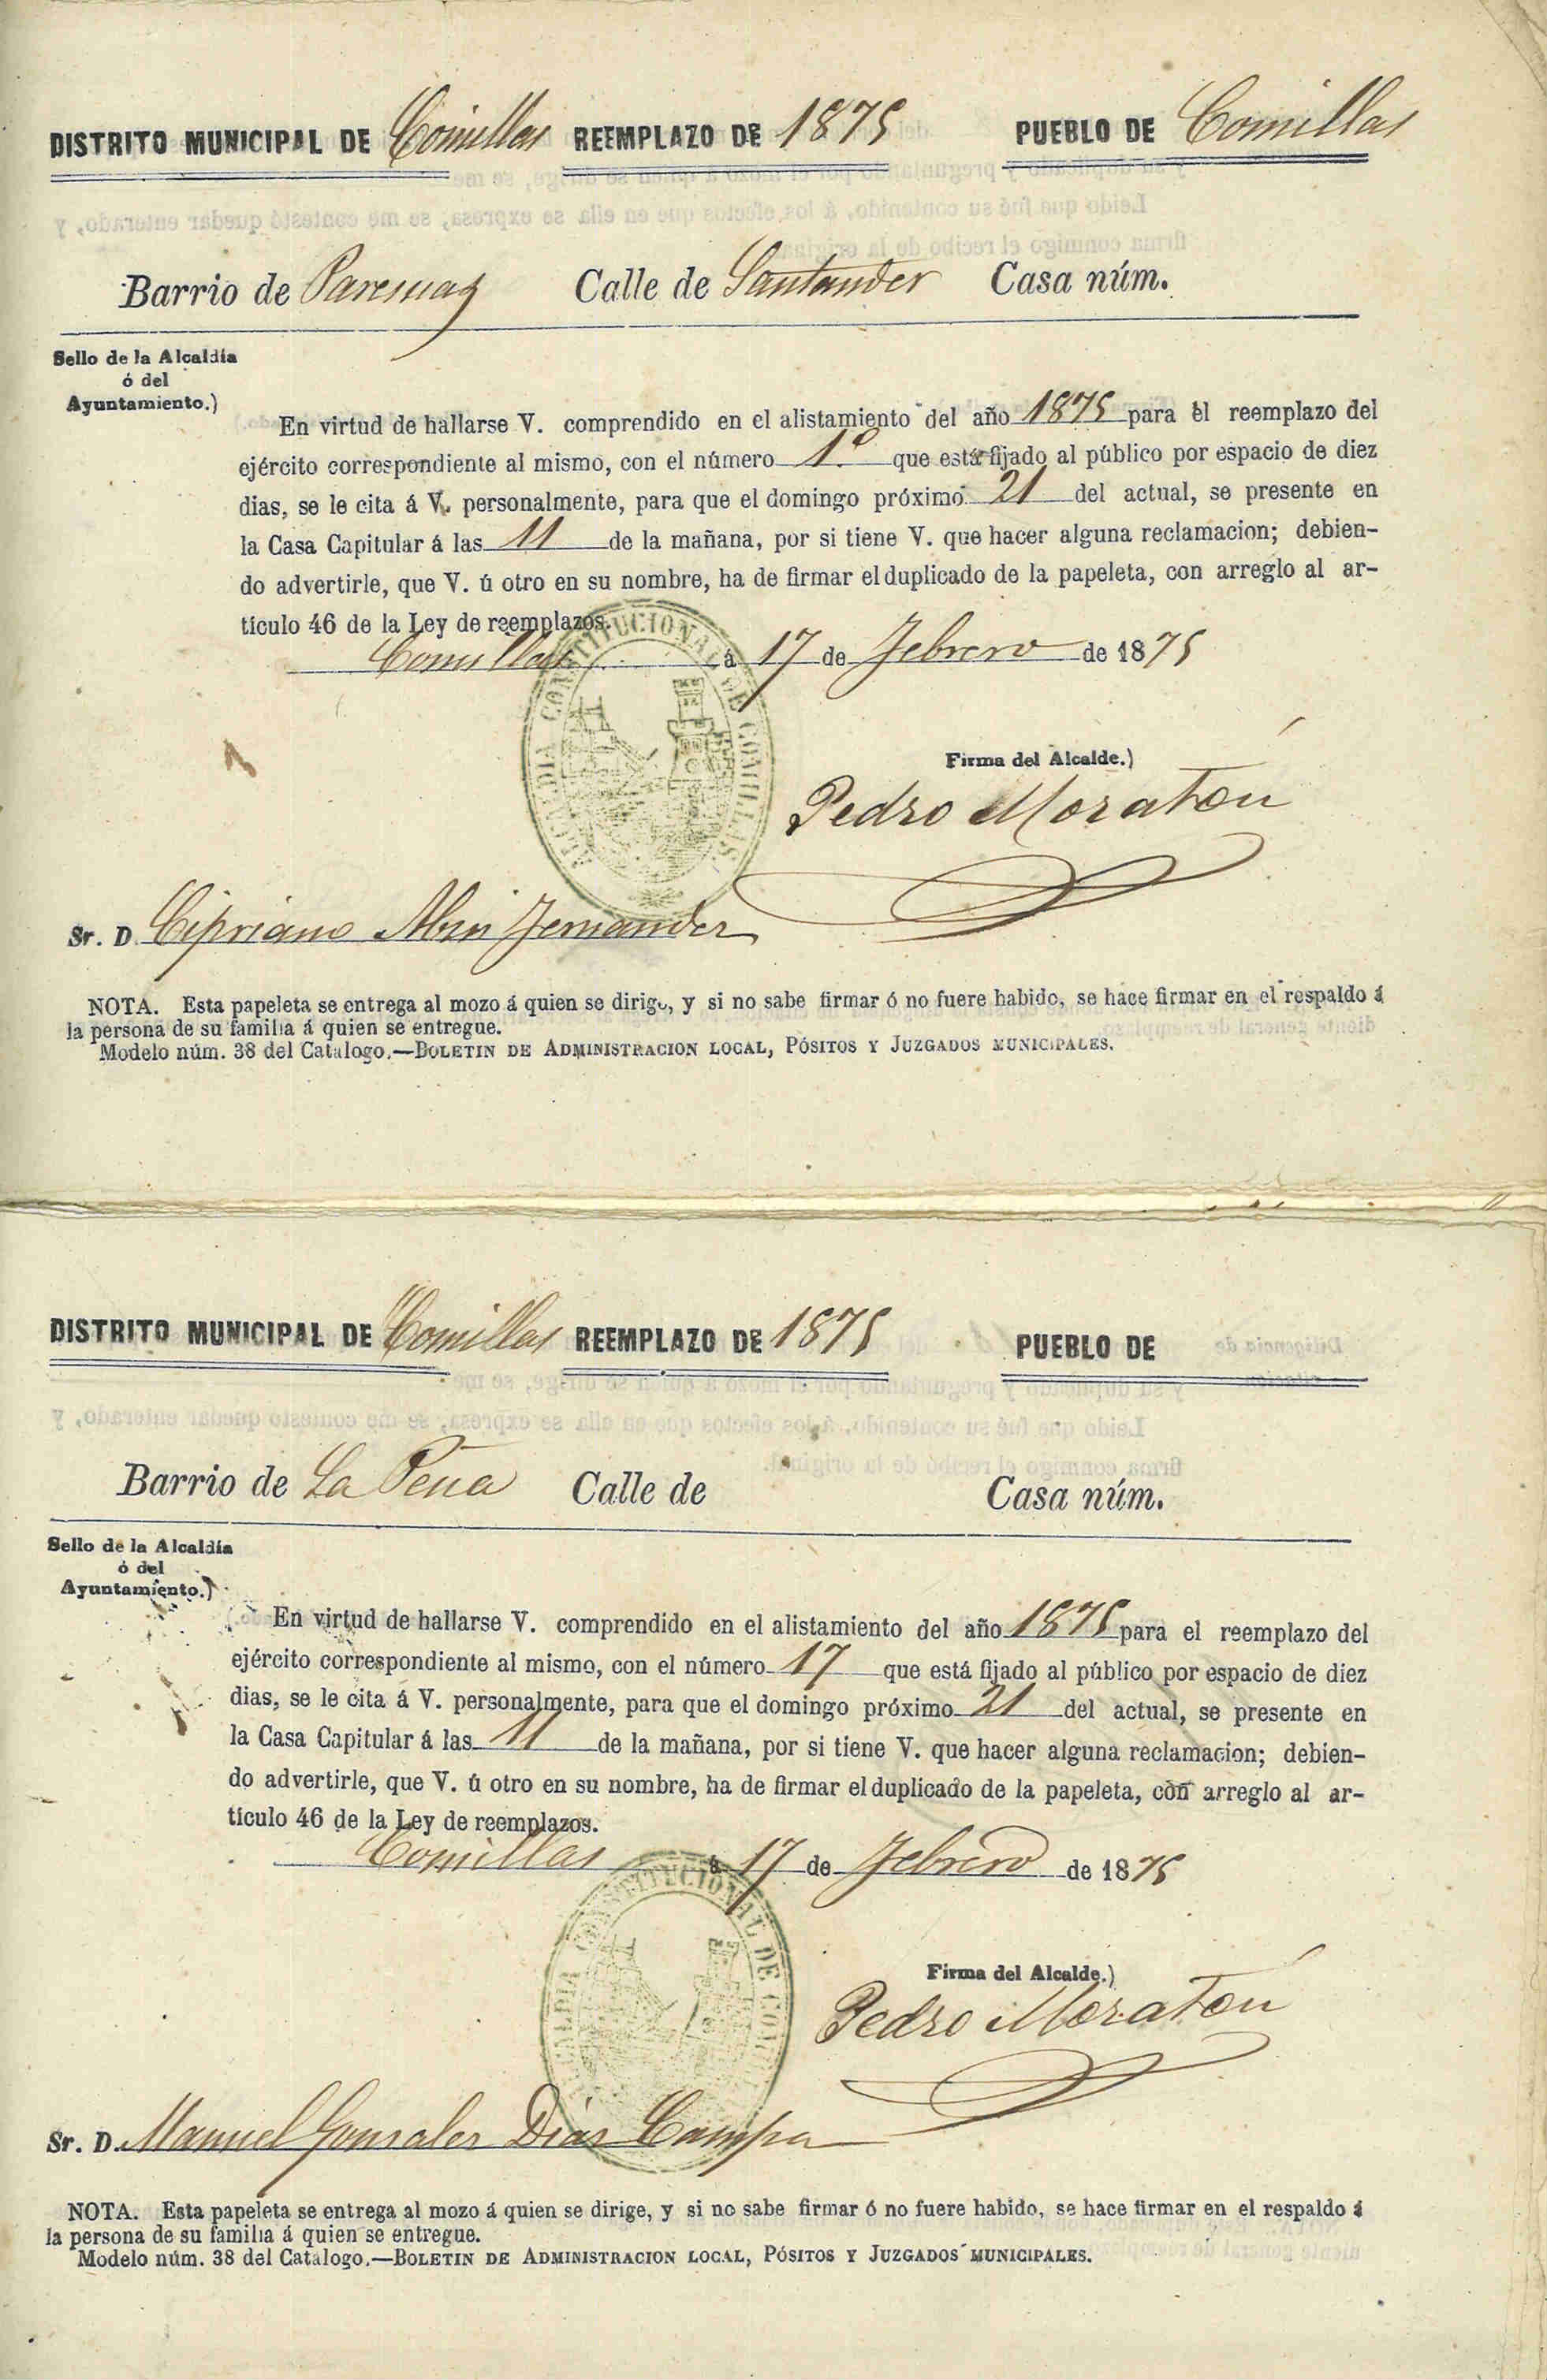 DISTRITO MUNICIPAL DE Comillas REEMPLAZO DE 1875 PUEBLO DE Comillas
Barrio de Calle de Santander Casa núm.
Sello de la Alcaldía
ó del
Ayuntamiento.)
En virtud de hallarse V. comprendido en el alistamiento del año 1875 para el reemplazo del
ejército correspondiente al mismo, con el número 1.º que está fijado al público por espacio de diez
dias, se le cita á V. personalmente, para que el domingo próximo 21 del actual, se presente en
la Casa Capitular á las 11 de la mañana, por si tiene V. que hacer alguna reclamacion; debien-
do advertirle, que V. ú otro en su nombre, ha de firmar el duplicado de la papeleta, con arreglo al ar-
tículo 46 de la Ley de reemplazos.
Comillas á 17 de Febrero de 1875
ALCALDIA CONSTITUCIONAL DE COMILLAS
Firma del Alcalde.)
Pedro Moratón
Sr. D. Cipriano Fernandez
NOTA. Esta papeleta se entrega al mozo á quien se dirige, y si no sabe firmar ó no fuere habido, se hace firmar en el respaldo á
la persona de su familia á quien se entregue.
Modelo núm. 38 del Catalogo.—BOLETIN DE ADMINISTRACION LOCAL, PÓSITOS Y JUZGADOS MUNICIPALES.
DISTRITO MUNICIPAL DE Comillas REEMPLAZO DE 1875 PUEBLO DE
Barrio de La Peña Calle de Casa núm.
Sello de la Alcaldía
ó del
Ayuntamiento.)
En virtud de hallarse V. comprendido en el alistamiento del año 1875 para el reemplazo del
ejército correspondiente al mismo, con el número 17 que está fijado al público por espacio de diez
dias, se le cita á V. personalmente, para que el domingo próximo 21 del actual, se presente en
la Casa Capitular á las 11 de la mañana, por si tiene V. que hacer alguna reclamacion; debien-
do advertirle, que V. ú otro en su nombre, ha de firmar el duplicado de la papeleta, con arreglo al ar-
tículo 46 de la Ley de reemplazos.
Comillas á 17 de Febrero de 1875
ALCALDIA CONSTITUCIONAL DE COMILLAS
Firma del Alcalde.)
Pedro Moratón
Sr. D. Manuel Gonzalez Dias Campa
NOTA. Esta papeleta se entrega al mozo á quien se dirige, y si no sabe firmar ó no fuere habido, se hace firmar en el respaldo á
la persona de su familia á quien se entregue.
Modelo núm. 38 del Catalogo.—BOLETIN DE ADMINISTRACION LOCAL, PÓSITOS Y JUZGADOS MUNICIPALES.